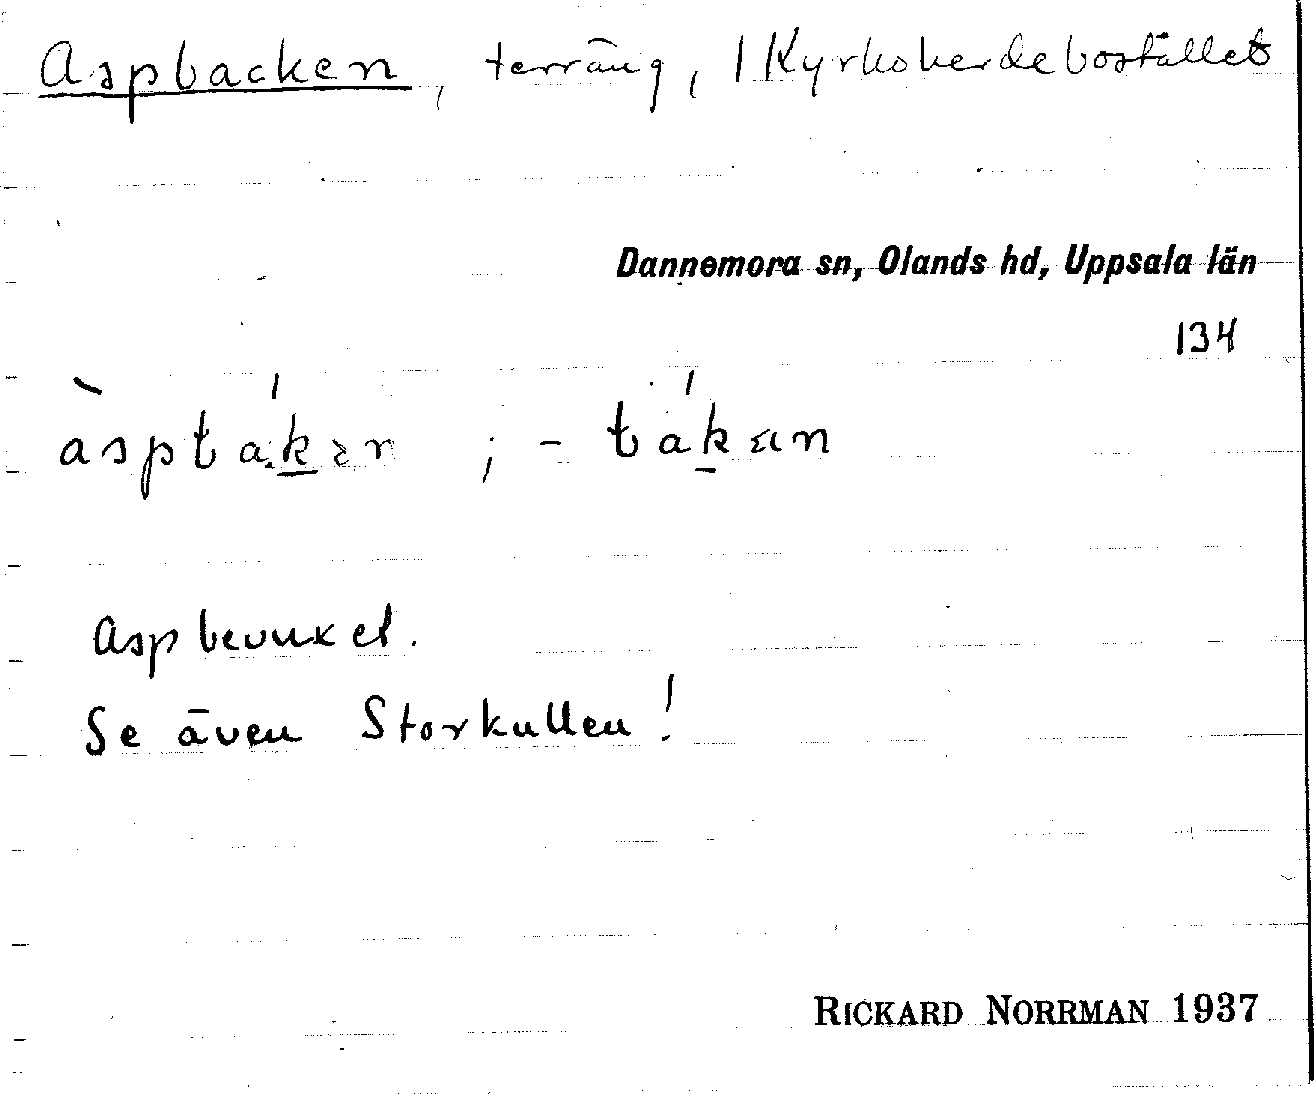 Aspbacken, terräng, 1 Kyrkoherdebostället
Dannemora sn, Olands hd, Uppsala län
134
Aspbevuxet.
Se även Storkullen!
RICKARD NORRMAN 1937